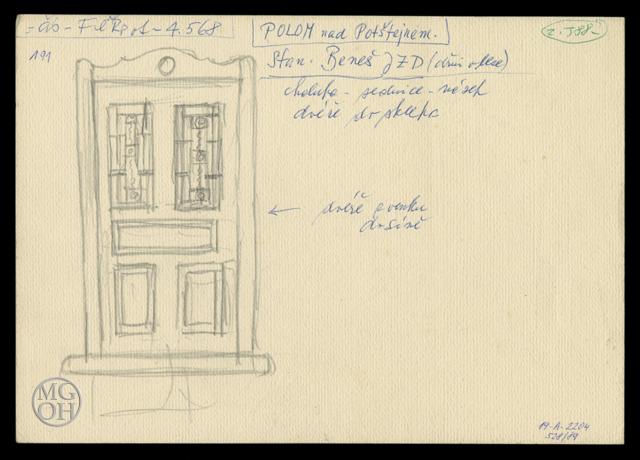 4.568
POLOM nad Potštejnem.
Z. J88-
191
Stan. Beneš JZD
chalupa - sednice - násep
dveře do sklepa
← dveře zvenku
do síně
MG
OH
19-A-2204
528/89